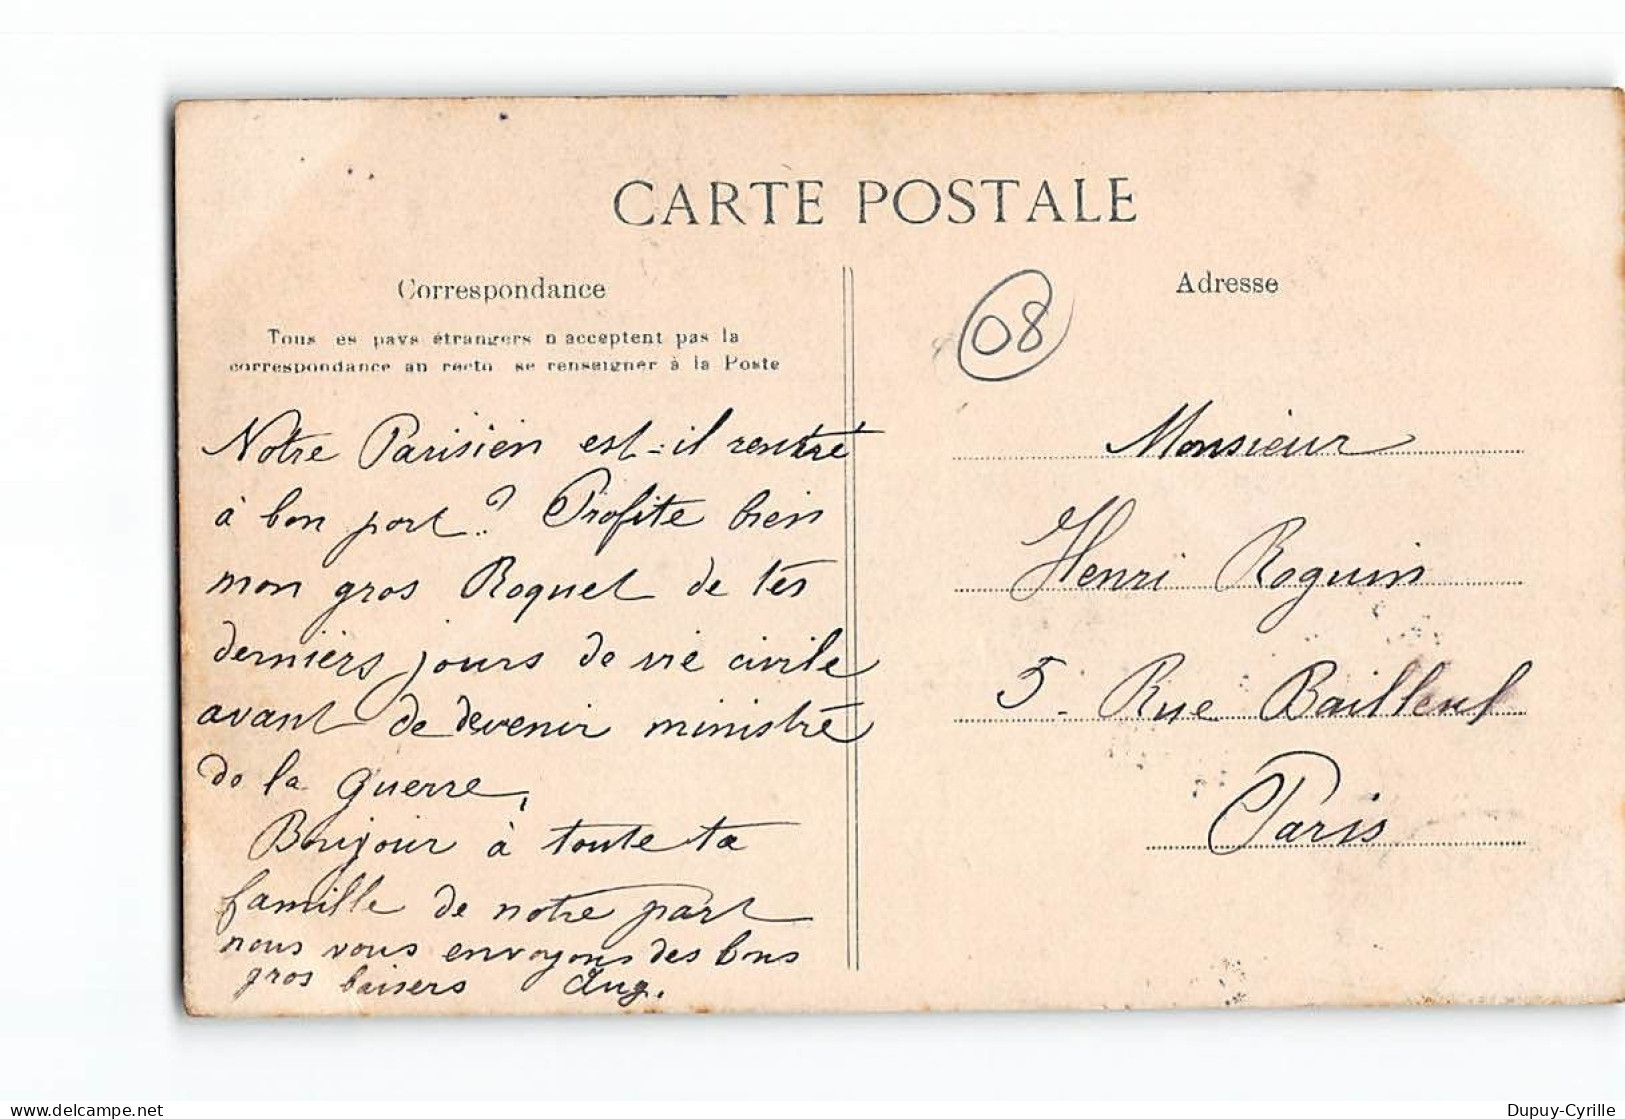 CARTE POSTALE
Correspondance
Tous es pays étrangers n acceptent pas la
correspondance au recto se renseigner à la Poste
Notre Parisien est-il rentré
à bon port? Profite bien
mon gros Roquet de tes
derniers jours de vie civile
avant de devenir ministre
de la guerre,
Bonjour à toute ta
famille de notre part
nous vous envoyons des bons
gros baisers Aug.
08
Adresse
Monsieur
Henri Roguin
5 - Rue Bailleul
Paris
delcampe.net
Dupuy-Cyrille